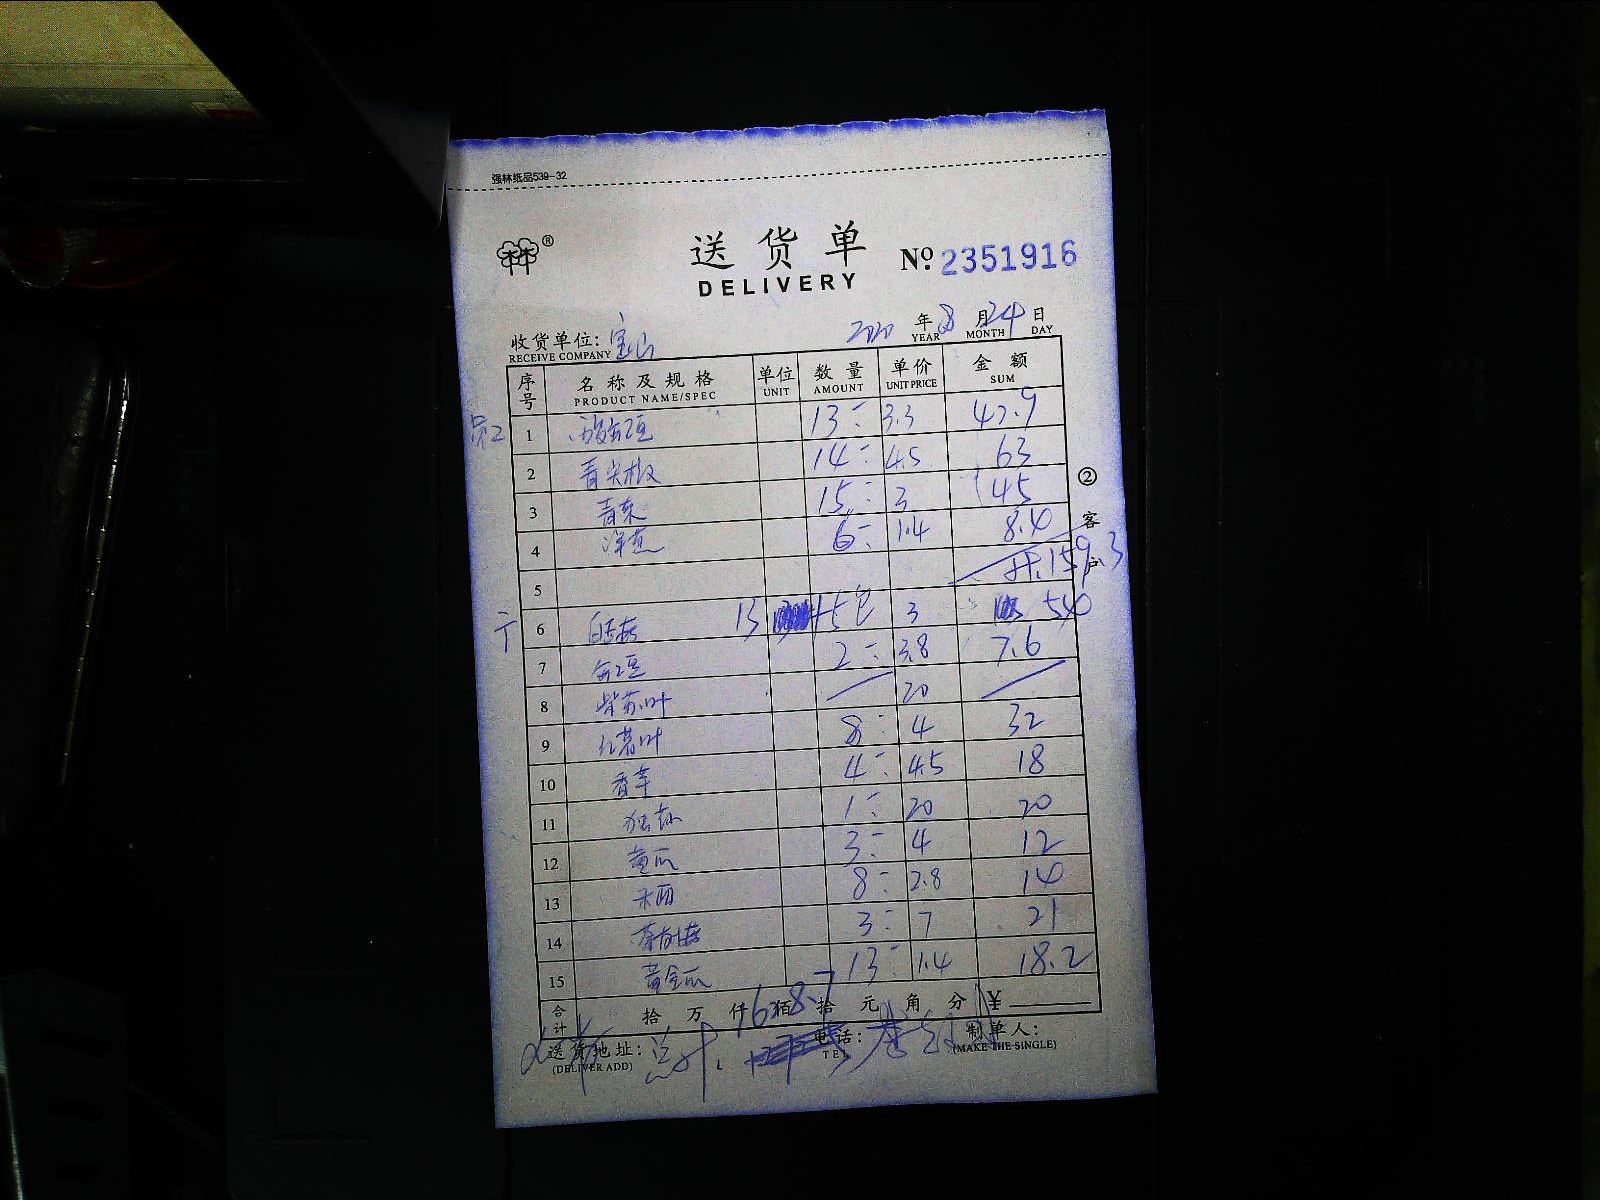 强林纸品539-32
林 ®
送货单 Nº 2351916
DELIVERY
2020 年 8 月 24 日
YEAR MONTH DAY
收货单位: 宝山
RECEIVE COMPANY
序号 名称及规格 单位 数量 单价 金额
PRODUCT NAME/SPEC UNIT AMOUNT UNIT PRICE SUM
员工
1 酸缸豆 13 3.3 42.9
2 青尖椒 14 4.5 63
3 青菜 15 3 45
4 洋葱 6 1.4 8.4
5 计.159.3
6 13 +5包 3 54
7 缸豆 2 3.8 7.6
8 紫苏叶 20
9 红薯叶 8 4 32
10 香芋 4 4.5 18
11 1 20 20
12 黄瓜 3 4 12
13 8 2.8 14
14 3 7 21
15 黄金瓜 13 1.4 18.2
② 客户
合计 拾 万 仟 佰 拾 元 角 分 ¥
168.7
送货地址: 电话: 制单人:
(DELIVER ADD) TEL (MAKE THE SINGLE)